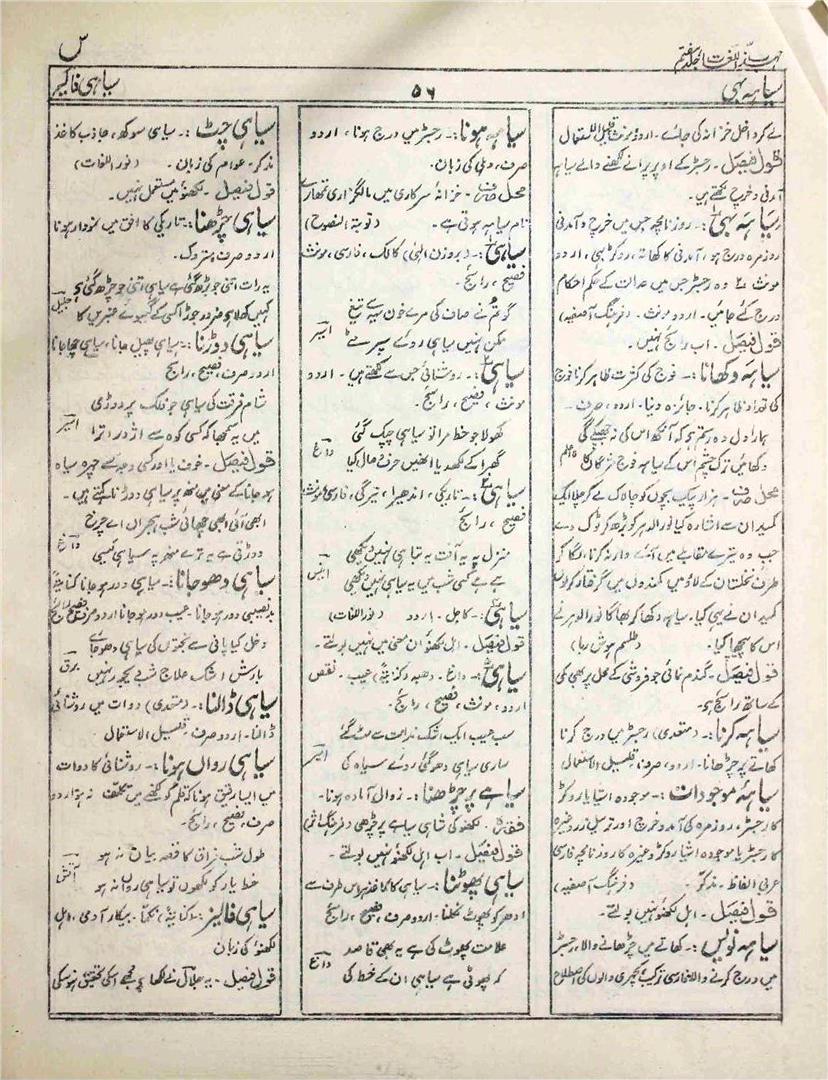 مہذب اللغات جلد ہفتم
س
سیاہہ بہی
۵۶
سیاہی فالیز
لے کر داخل خزانہ کی جائے۔ اردو مونث قلیل الاستعمال
قول فیصل۔ رجسٹر کے اوپر پرانے لکھنے والے سیاہہ
آمدنی و خرچ لکھتے ہیں۔
سیاہہ بہی:۔ روزنامچہ جس میں خرچ و آمدنی
روزمرہ درج ہو، آمدنی کا کھاتہ، روکڑ بہی، اردو
مونث ۲؎ وہ رجسٹر جس میں عدالت کے حکم احکام
درج کئے جائیں۔ اردو مونث۔ (فرہنگ آصفیہ)
قول فیصل۔ اب رائج نہیں۔
سیاہہ دکھانا:۔ فوج کی کثرت ظاہر کرنا فوج
کی تعداد ظاہر کرنا۔ جائزہ دینا۔ اردو، صرف۔
ہمارا دل وہ رستم ہے کہ آنکھ اس کی نہ جھپکے گی
دکھائیں ترک چشم اس کے سیاہہ فوج مژگاں کا
محل صرف۔ ہزار پیک بچوں کو چالاک لے کر چلا ایک
کمیدان سے اشارہ کیا نورالدہر کو بڑھ کر ٹوک دے
جب وہ تیرے مقابلے میں آئے وار نہ کرنا، لگا کر
طرف نخلستان کے لاؤ میں کمندوں میں گرفتار کر لوں
کمیدان نے یہی کیا۔ سیاہہ دکھا کر بھاگا نورالدہر نے
اس کا پیچھا کیا۔ (طلسم ہوش ربا)
قول فیصل۔ گندم نمائی جو فروشی کے محل پر بھی کی
کے ساتھ رائج ہے۔
سیاہہ کرنا:۔ (متعدی) رجسٹر میں درج کرنا
کھاتے پر چڑھانا۔ اردو، صرف، قلیل الاستعمال
سیاہہ موجودات:۔ موجودہ اشیا یا روکڑ
کا رجسٹر، روزمرہ کی آمد و خرچ اور ترسیل زر وغیرہ
کا رجسٹر یا موجودہ اشیا روکڑ وغیرہ کا روزنامچہ فارسی
عربی الفاظ۔ مذکر۔ (فرہنگ آصفیہ)
قول فیصل۔ اہل لکھنؤ نہیں بولتے۔
سیاہہ نویس:۔ کھاتے میں چڑھانے والا، رجسٹر
میں درج کرنے والا فارسی ترکیب کچہری والوں کی اصطلاح
سیاہہ ہونا:۔ رجسٹر میں درج ہونا، اردو
صرف، دہلی کی زبان۔
محل صرف۔ خزانہ سرکاری میں مالگزاری تمھارے
نام سیاہہ ہوتی ہے۔ (توبۃ النصوح)
سیاہی:۔ (بروزن الٰہی) کالک، فارسی، مونث
فصیح، رائج۔
گو غم نے صاف کی مرے خون سیہ سے تیغ
لیکن نہیں سیاہی روئے سپر سے امیرؔ
سیاہی:۔ روشنائی جس سے لکھتے ہیں۔ اردو
مونث، فصیح، رائج۔
کھولا جو خط مرا تو سیاہی چپک گئی
گھبرا کے لکھدیا انھیں حرف محال کیا داغؔ
سیاہی:۔ تاریکی، اندھیرا، تیرگی، فارسی مونث،
فصیح، رائج
منزل پہ یہ آفت یہ تباہی نہیں دیکھی
ہے ہے کسی شب میں یہ سیاہی نہیں دیکھی انیسؔ
سیاہی:۔ کاجل۔ اردو (نوراللغات)
قول فیصل۔ اہل لکھنؤ ان معنی میں نہیں بولتے۔
سیاہی:۔ داغ۔ دھبہ (کنایۃً) عیب۔ نقص
اردو، مونث، فصیح، رائج۔
سب عیب ایک اشک ندامت سے مٹ گئے
ساری سیاہی دھو گئی روئے سیاہ کی امیرؔ
سیاہے پر چڑھنا:۔ زوال آمادہ ہونا۔
فقرہ۔ لکھنؤ کی شاہی سیاہے پر چڑھی (فرہنگ اثر)
قول فیصل۔ اب اہل لکھنؤ نہیں بولتے۔
سیاہی پھوٹنا:۔ سیاہی کا کاغذ پر اس طرف سے
ادھر کو پھوٹ نکلنا۔ اردو صرف، فصیح، رائج
علامت پھوٹ کی ہے یہ بھی قاصد
کہ پھوٹی ہے سیاہی ان کے خط کی داغؔ
سیاہی چٹ:۔ سیاہی سوکھ، جاذب کاغذ
مذکر۔ عوام کی زبان۔ (نوراللغات)
قول فیصل۔ لکھنؤ میں مستعمل نہیں۔
سیاہی چڑھنا:۔ تاریکی کا افق میں نمودار ہونا
اردو صرف متروک۔
یہ رات اتنی جو بڑھ گئی ہے سیاہی اتنی جو چڑھ گئی ہے
کہیں کھلا ہے ضرور جوڑا کسی کے گیسوئے عنبریں کا جلیلؔ
سیاہی دوڑنا:۔ سیاہی پھیل جانا، سیاہی چھا جانا
اردو صرف، فصیح، رائج
شام فرقت کی سیاہی جو فلک پر دوڑی
میں یہ سمجھا کہ کسی کوہ سے اژدر اترا امیرؔ
قول فیصل۔ خوف یا اور کسی وجہ سے چہرہ سیاہ
ہو جانا کے معنی میں منھ پر سیاہی دوڑنا کہتے ہیں۔
ابھی آئی ابھی چھائی شب ہجراں اے چرخ
دوڑتی ہے یہ ترے منھ پہ سیاہی کیسی داغؔ
سیاہی دھو جانا:۔ سیاہی دور ہو جانا کنایۃً
بدنصیبی دور ہو جانا۔ عیب دور ہو جانا اردو صرف فصیح رائج
دخل کیا پانی سے بختوں کی سیاہی دھو جائے
بارش اشک علاج شب دیجور نہیں برقؔ
سیاہی ڈالنا:۔ (متعدی) دوات میں روشنائی
ڈالنا۔ اردو صرف، قلیل الاستعمال
سیاہی رواں ہونا:۔ روشنائی کا دوات
میں ایسا رقیق ہونا کہ قلم کو لکھنے میں تکلف نہ ہو اردو
صرف، فصیح، رائج۔
طول شب فراق کا قصہ بیان نہ ہو
خط یار کو لکھوں تو سیاہی رواں نہ ہو آتشؔ
سیاہی فالیز:۔ (کنایۃً) نکما۔ بیکار آدمی، اہل
لکھنؤ کی زبان
قول فیصل۔ یہ جلالؔ نے لکھا ہے مجھے اسکی تحقیق نہ ہو سکی